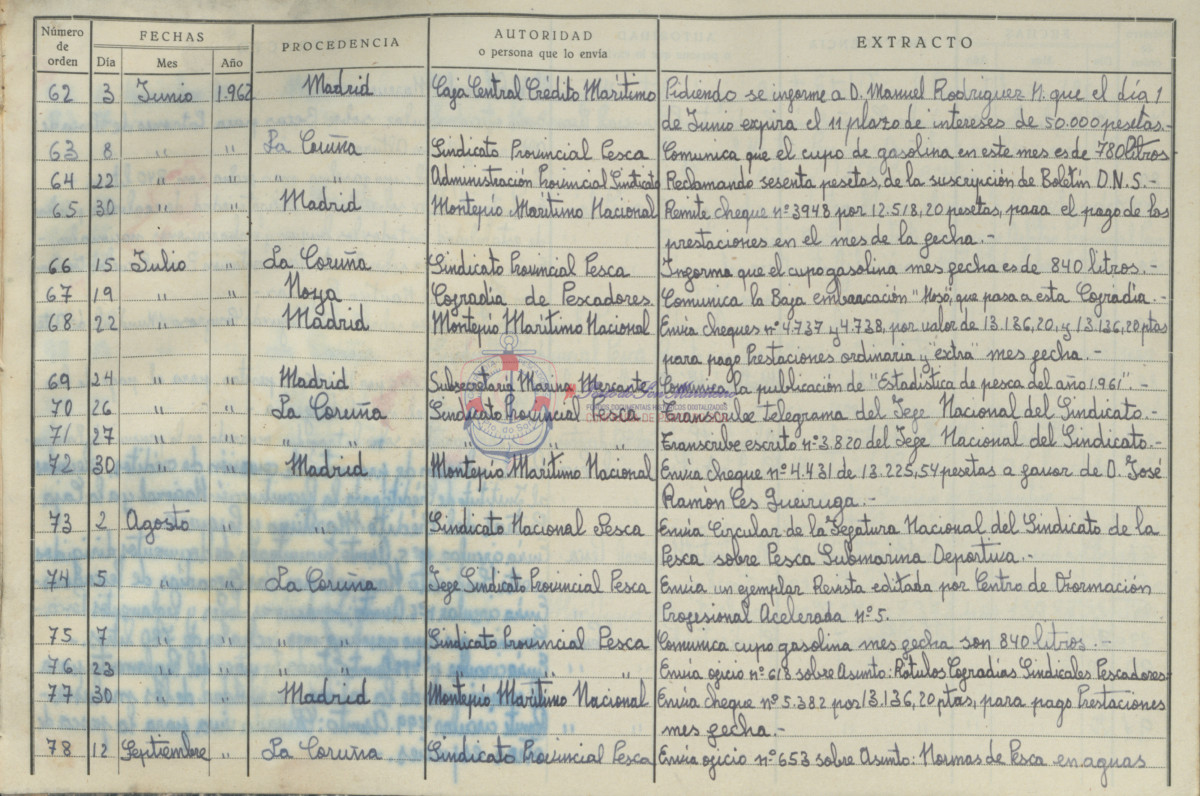 Número de orden FECHAS PROCEDENCIA AUTORIDAD o persona que lo envía EXTRACTO
Día Mes Año
62 3 Junio 1.962 Madrid Caja Central Crédito Marítimo Pidiendo se informe a D. Manuel Rodriguez N. que el día 1
de Junio expira el 11 plazo de intereses de 50.000 pesetas.-
63 8 " " La Coruña Sindicato Provincial Pesca Comunica que el cupo de gasolina en este mes es de 780 litros
64 22 " " " " Administración Provincial Sindicato Reclamando sesenta pesetas, de la suscripción de Boletín D.N.S.-
65 30 " " Madrid Montepío Marítimo Nacional Remite cheque nº 3948 por 12.518,20 pesetas, para el pago de las
prestaciones en el mes de la fecha.-
66 15 Julio " La Coruña Sindicato Provincial Pesca Informa que el cupo gasolina mes fecha es de 840 litros.-
67 19 " " Noya Cofradía de Pescadores. Comunica la Baja embarcación "Mosó", que pasa a esta Cofradía.-
68 22 " " Madrid Montepío Marítimo Nacional Envía cheques nº 4.737 y 4.738, por valor de 13.136,20, y 13.136,20 ptas
para pago Prestaciones ordinaria y "extra" mes fecha.-
69 24 " " Madrid Subsecretaría Marina Mercante Comunica la publicación de "Estadística de pesca del año 1.961".-
70 26 " " La Coruña Sindicato Provincial Pesca Transcribe telegrama del Jefe Nacional del Sindicato.-
71 27 " " " " " " " Transcribe escrito nº 3.820 del Jefe Nacional del Sindicato.-
72 30 " " Madrid Montepío Marítimo Nacional Envía cheque nº 4.431 de 13.225,54 pesetas a favor de D. José
Ramón Ces Queiruga.-
73 2 Agosto " " Sindicato Nacional Pesca Envía Circular de la Jefatura Nacional del Sindicato de la
Pesca sobre Pesca Submarina Deportiva.-
74 5 " " La Coruña Jefe Sindicato Provincial Pesca Envía un ejemplar Revista editada por Centro de Formación
Profesional Acelerada nº 5.
75 7 " " " " Sindicato Provincial Pesca Comunica cupo gasolina mes fecha son 840 litros.-
76 23 " " " " " " " Envía oficio nº 618 sobre Asunto: Rótulos Cofradías Sindicales Pescadores
77 30 " " Madrid Montepío Marítimo Nacional Envía cheque nº 5.382 por 13.136,20 ptas, para pago Prestaciones
mes fecha.-
78 12 Septiembre " La Coruña Sindicato Provincial Pesca Envía oficio nº 653 sobre Asunto: Normas de Pesca en aguas